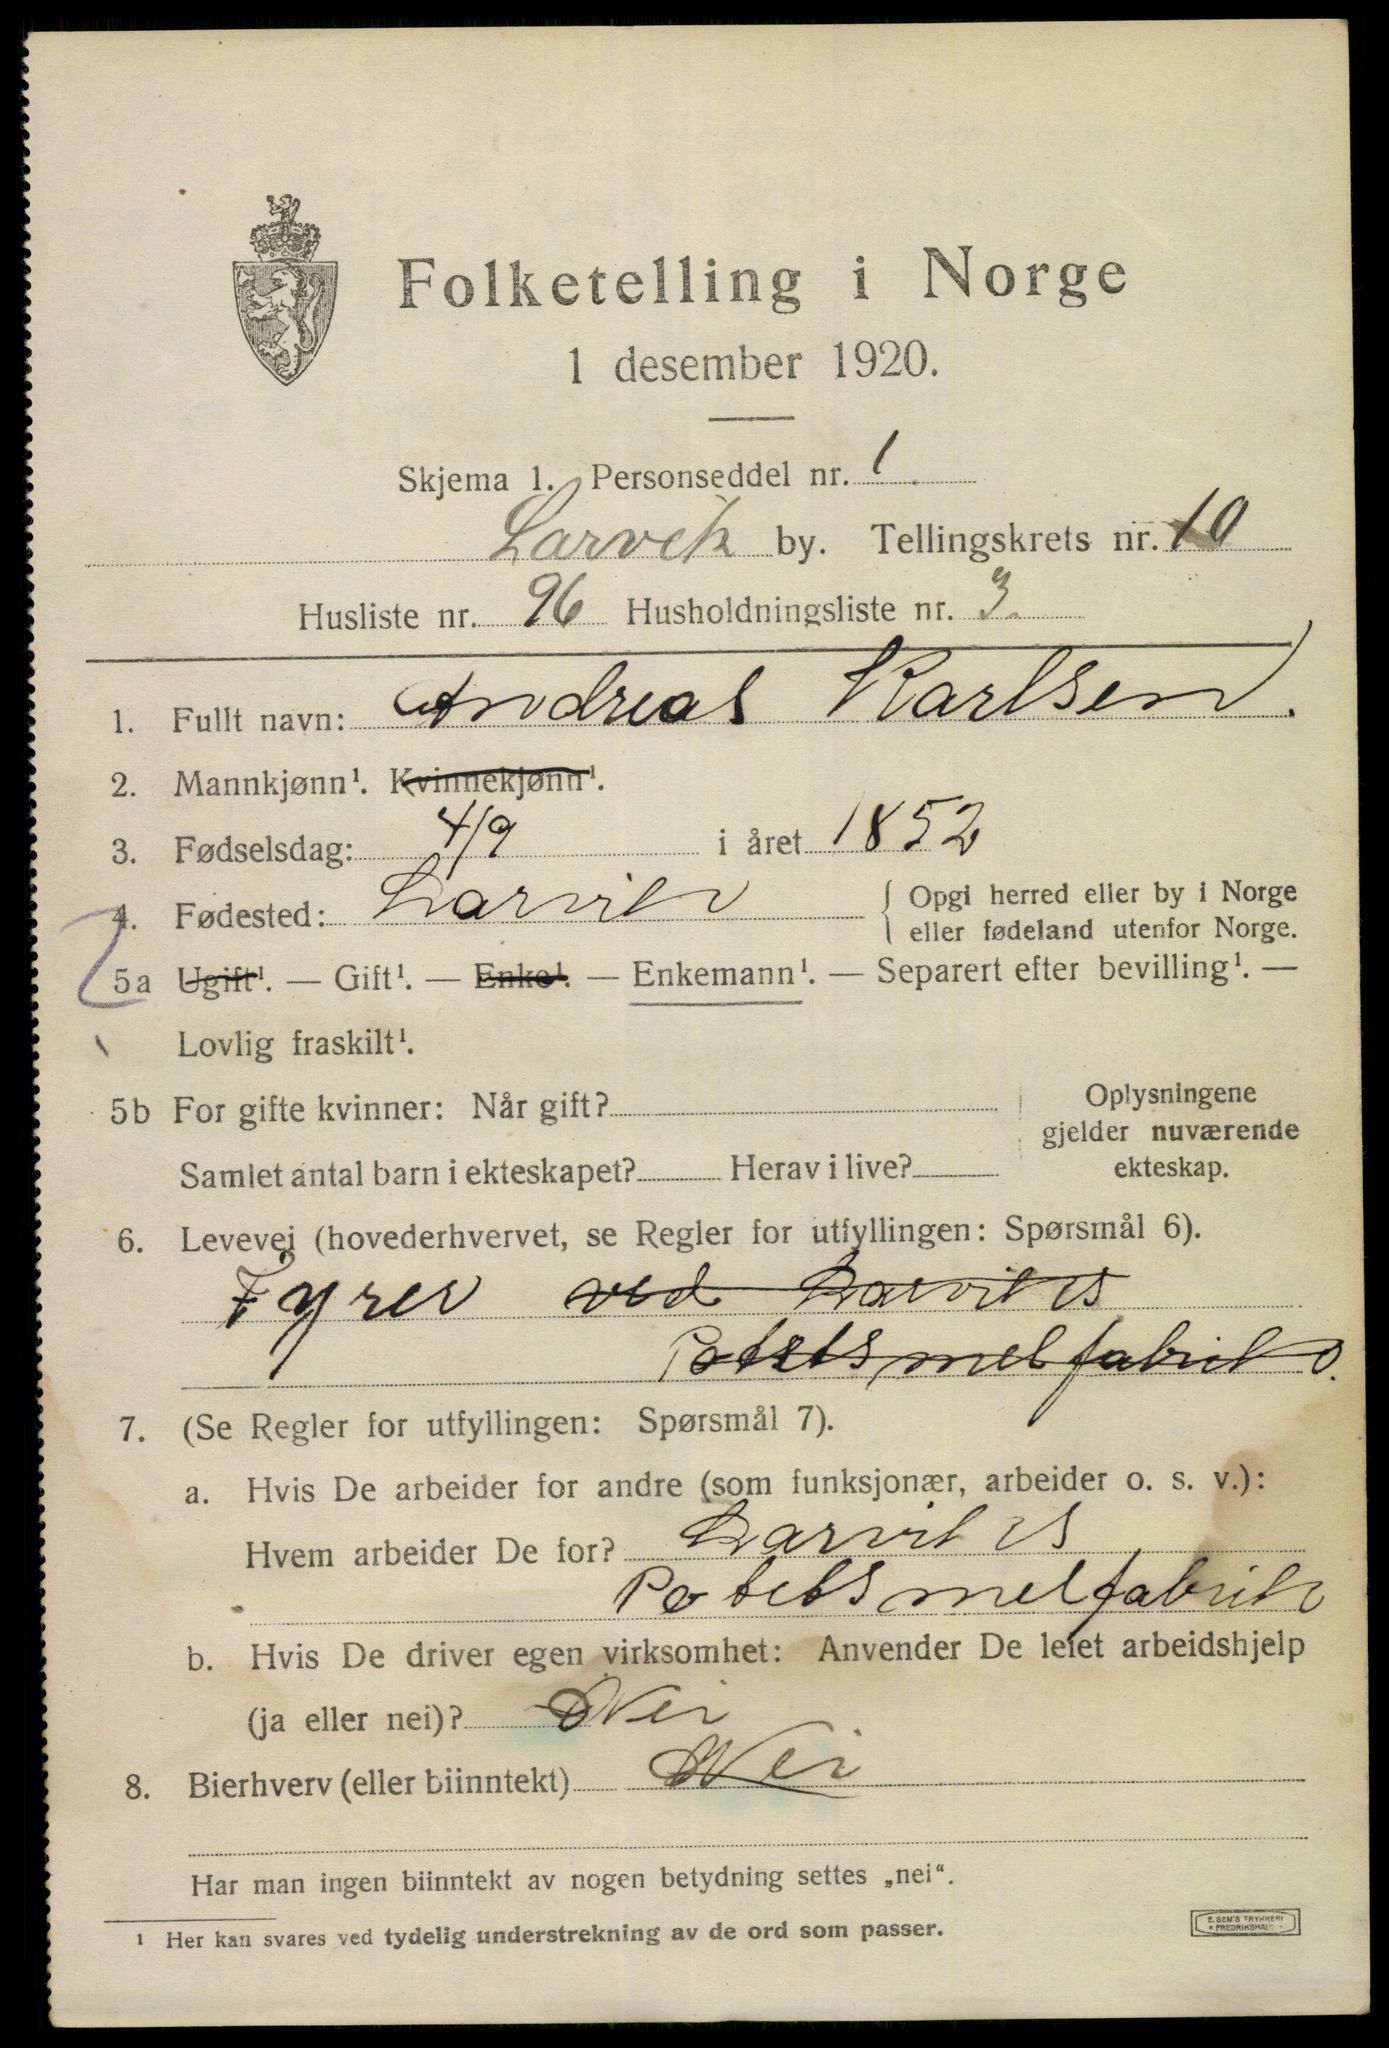 Folketelling i Norge
1 desember 1920.
Skjema 1. Personseddel nr. 1
Larvik by. Tellingskrets nr. 10
Husliste nr. 96 Husholdningsliste nr. 3
1. Fullt navn: Andreas Karlsen.
2. Mannkjønn¹. Kvinnekjønn¹.
3. Fødselsdag: 4/9 i året 1852
4. Fødested: Larvik { Opgi herred eller by i Norge
eller fødeland utenfor Norge.
5a Ugift¹. — Gift¹. — Enke¹. — Enkemann¹. — Separert efter bevilling¹. —
Lovlig fraskilt¹.
5b For gifte kvinner: Når gift? Oplysningene
gjelder nuværende
Samlet antal barn i ekteskapet? Herav i live? ekteskap.
6. Levevei (hovederhvervet, se Regler for utfyllingen: Spørsmål 6).
Fyrer ved Larviks
Potetsmelfabrik.
7. (Se Regler for utfyllingen: Spørsmål 7).
a. Hvis De arbeider for andre (som funksjonær, arbeider o. s. v.):
Hvem arbeider De for? Larviks
Potetsmelfabrik
b. Hvis De driver egen virksomhet: Anvender De leiet arbeidshjelp
(ja eller nei)? Nei
8. Bierhverv (eller biinntekt) Nei
Har man ingen biinntekt av nogen betydning settes „nei“.
¹ Her kan svares ved tydelig understrekning av de ord som passer.
E. SEM'S TRYKKERI
FREDRIKSHALD